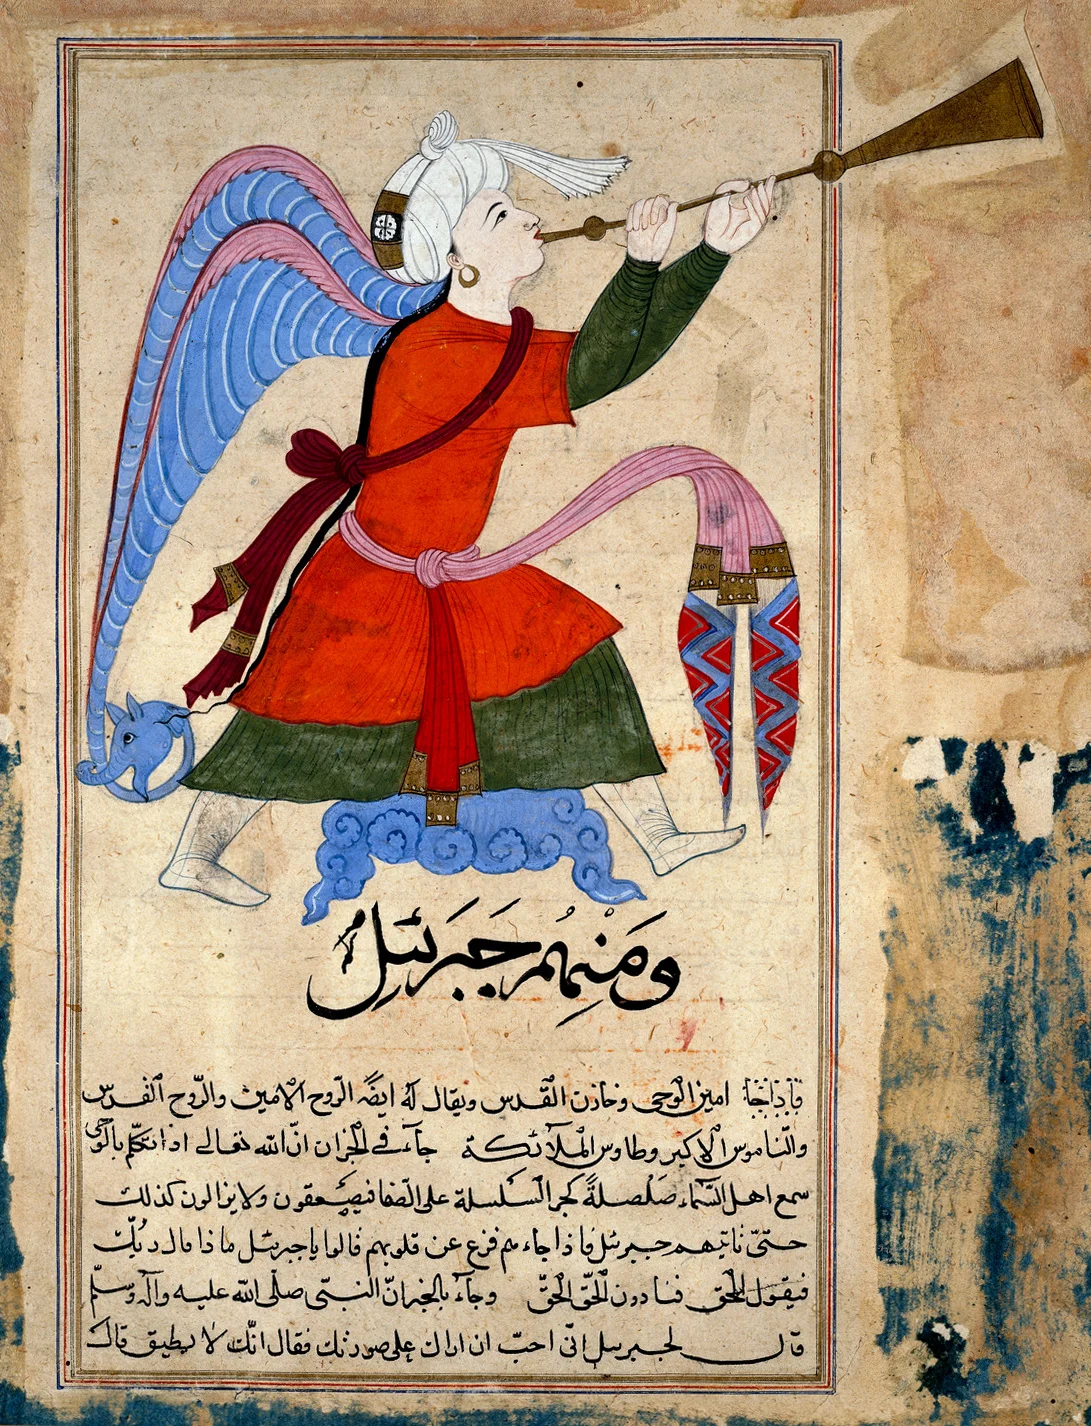 ومنهم جبرئيل
امين الوحى وخازن القدس ويقال له ايضًا الرّوح الامين والرّوح القدس
والنّاموس الاكبر وطاوس الملآئكة جآء فے الخبران انّ الله تعالے اذا تكلّم بالوحى
سمع اهل السّمآء صَلْصلةً كجر السلسلة على الصّفا فيصعقون ولا يزالون كذلك
حتّى ياتيهم جبرئل فاذا جاءهم فزع عن قلوبهم قالوا يا جبرئيل ماذا قال ربّك
فيقول الحق فينادون الحقّ الحقّ وجآء بالخبر انّ النبىّ صلّى الله عليه وآله وسلّم
قال لجبرئيل انّى احبّ ان اراك على صورتك فقال انّك لا يطيق قال